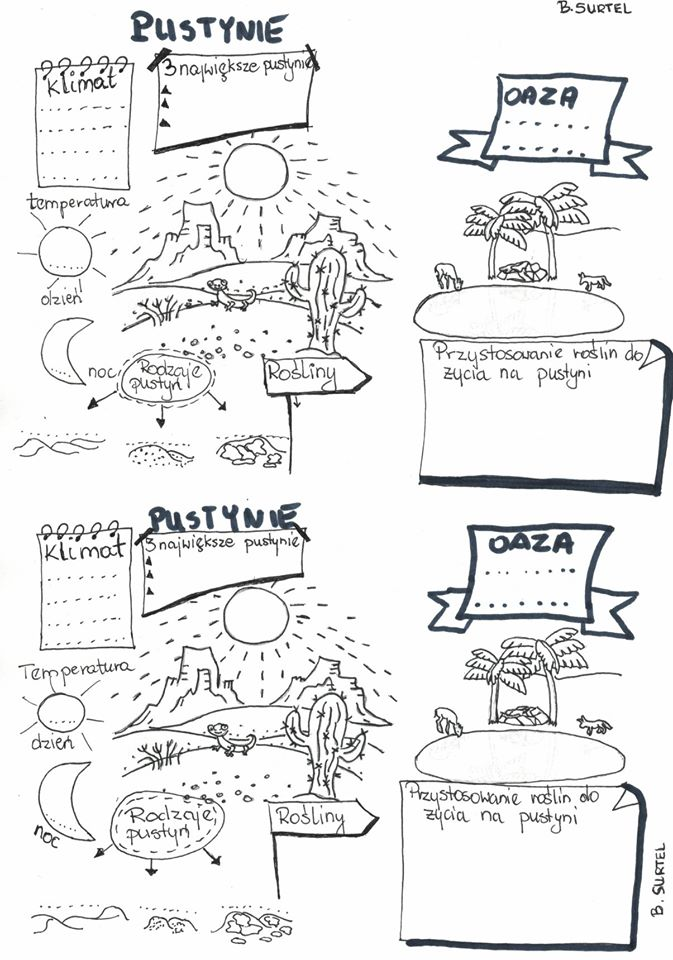 PUSTYNIE
B. SURTEL
Klimat
3 największe pustynie
OAZA
temperatura
dzień
noc
Rodzaje
pustyń
Rośliny
Przystosowanie roślin do
życia na pustyni
PUSTYNIE
Klimat
3 największe pustynie
OAZA
Temperatura
dzień
noc
Rodzaje
pustyń
Rośliny
Przystosowanie roślin do
życia na pustyni
B. SURTEL